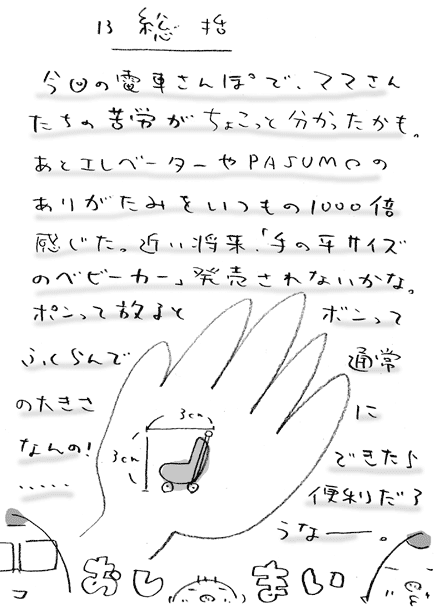 13 総括
今回の電車さんぽで、ママさん
たちの苦労がちょこっと分かったかも。
あとエレベーターやPASUMOの
ありがたみをいつもの1000倍
感じた。近い将来、「手の平サイズ
のベビーカー」発売されないかな。
ポンって放ると ボンって
ふくらんで 通常
の大きさ に
なんの! できた♪
...... 便利だろ
うなー。
3cm
3cm
おしまい